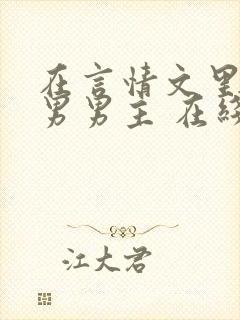 在言情文里
男男主 在
江大君